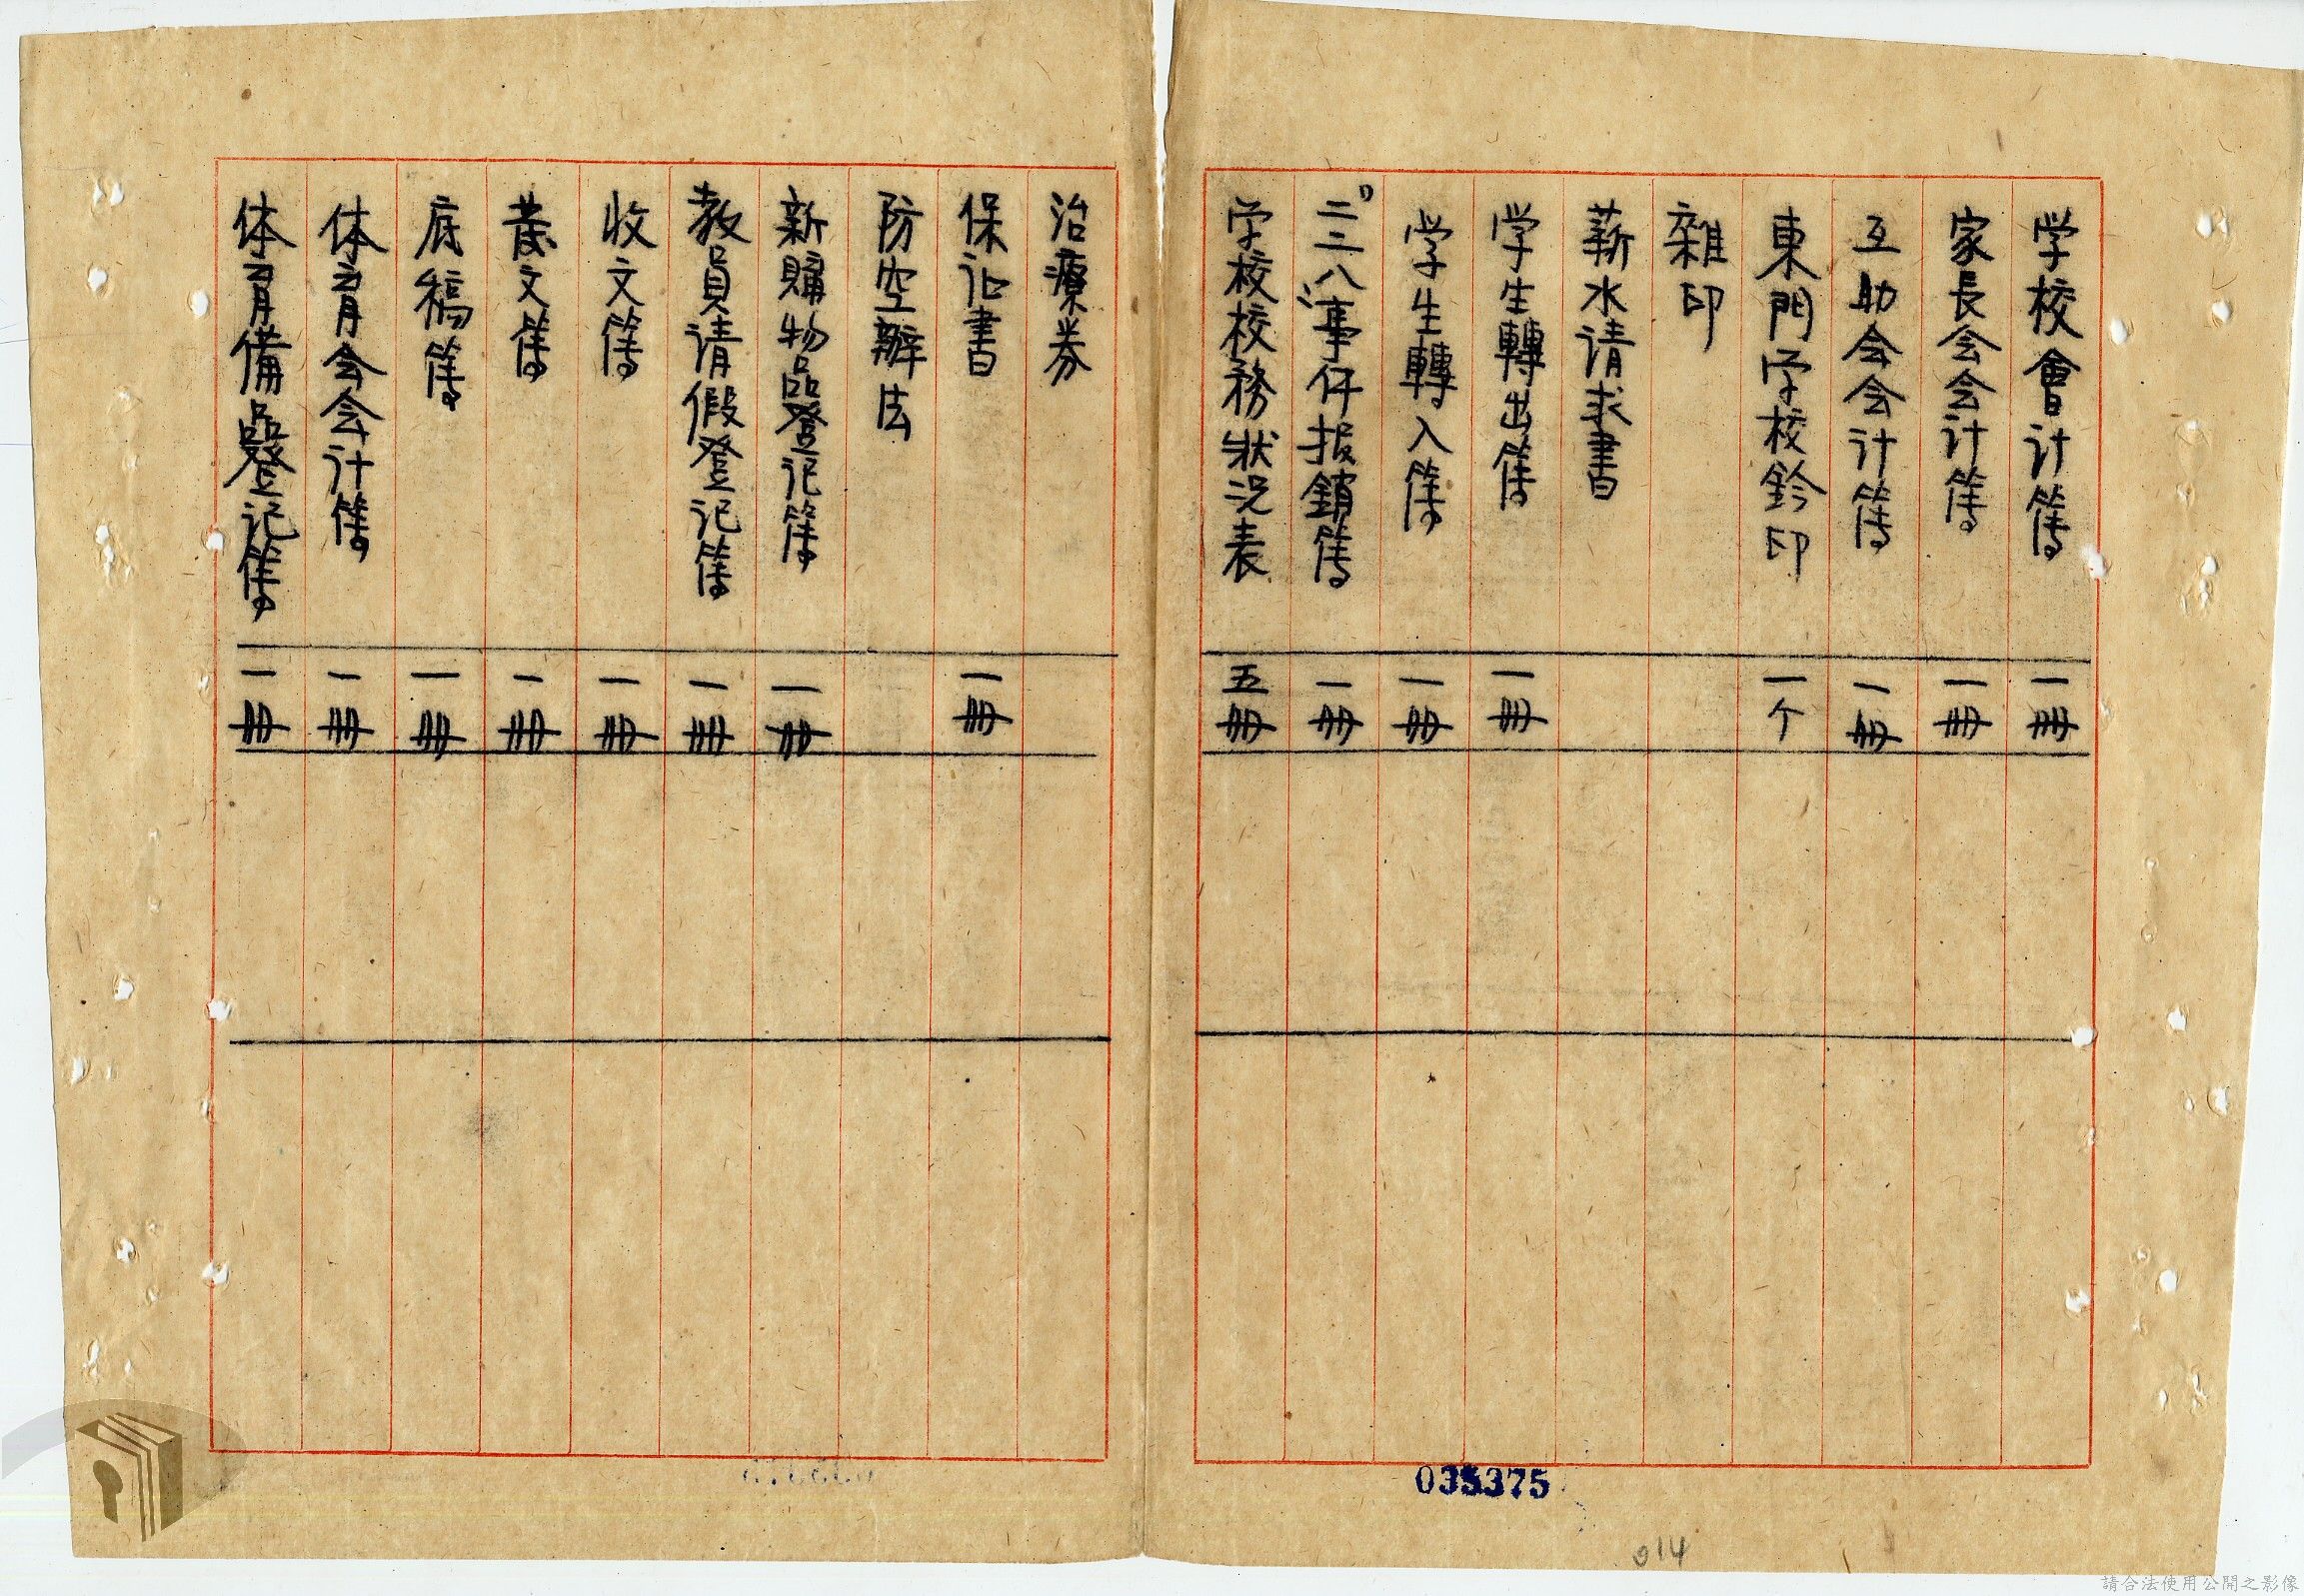 学校會计簿 一冊
家長会会计簿 一冊
互助会会计簿 一冊
東門学校鈐印 一个
雜印
薪水请求書
学生轉出簿 一冊
学生轉入簿 一冊
二二八事件报銷簿 一冊
学校校務狀况表 五冊
治療券
保证書 一冊
防空辦法
新購物品登记簿 一冊
教員请假登记簿 一冊
收文簿 一冊
发文簿 一冊
底稿簿 一冊
体育会会计簿 一冊
体育備品登记簿 一冊
035375
014
請合法使用公開之影像